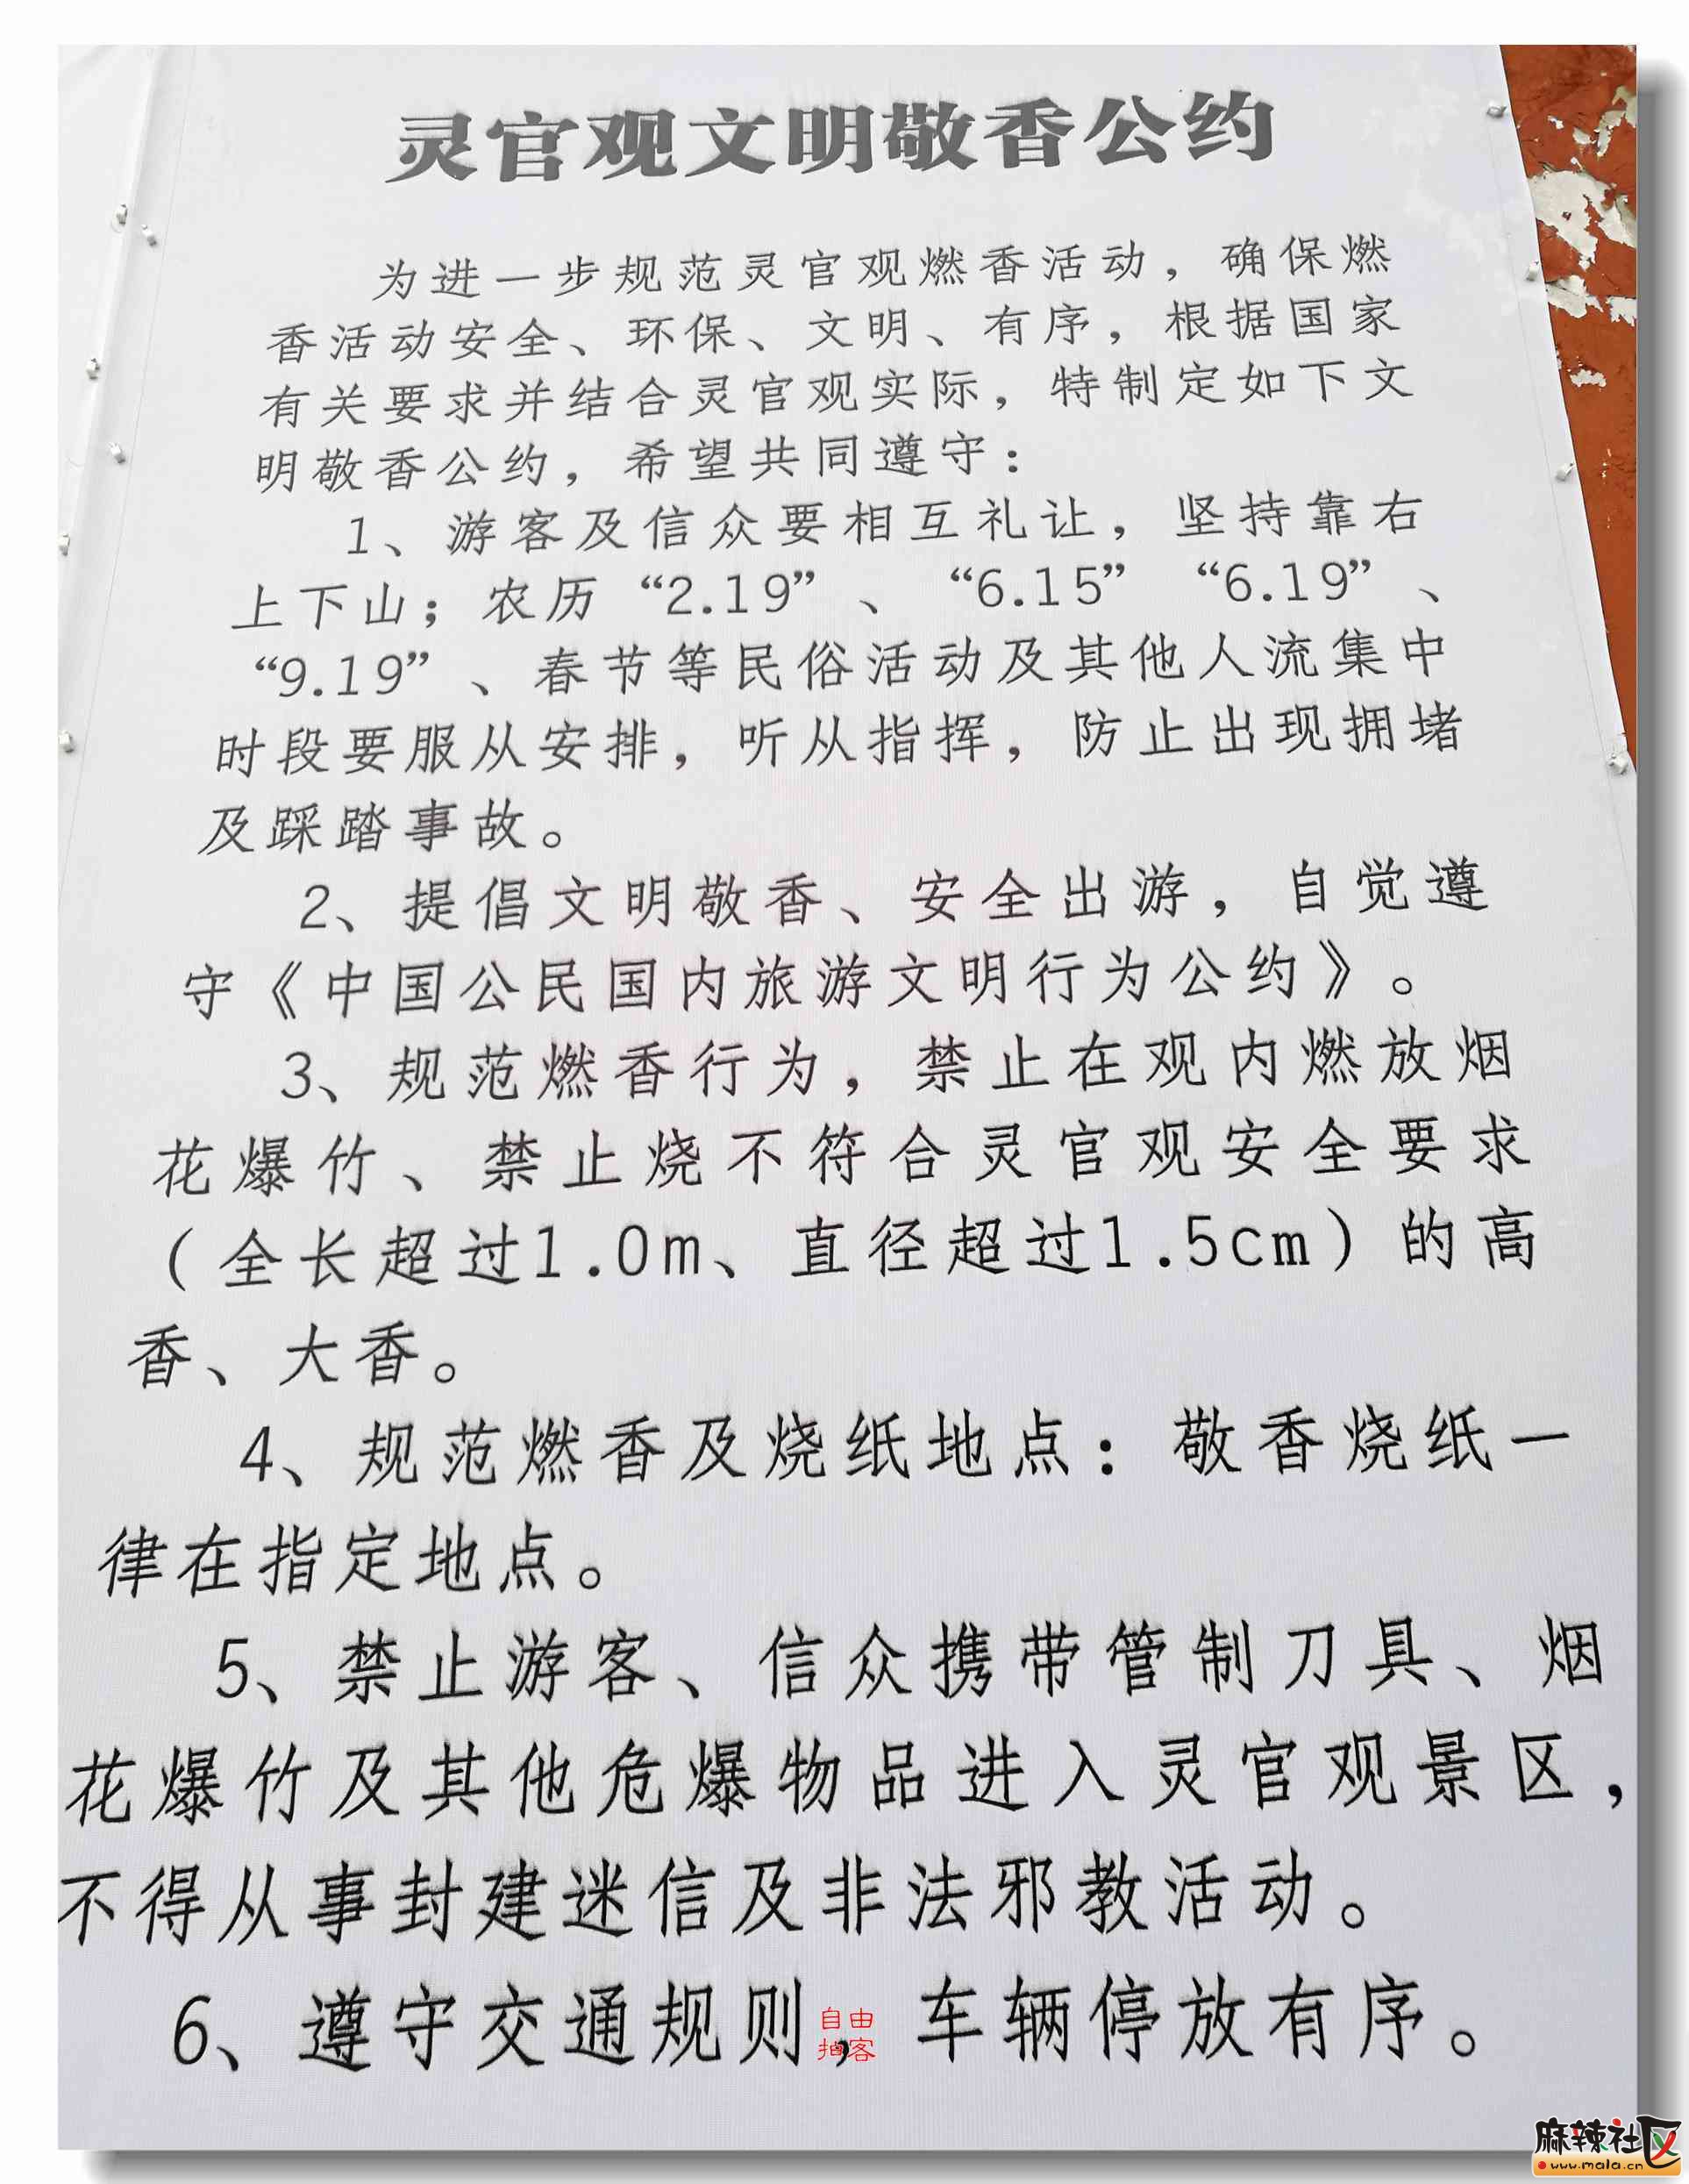 灵官观文明敬香公约
为进一步规范灵官观燃香活动，确保燃
香活动安全、环保、文明、有序，根据国家
有关要求并结合灵官观实际，特制定如下文
明敬香公约，希望共同遵守：
1、游客及信众要相互礼让，坚持靠右
上下山；农历“2.19”、“6.15”“6.19”、
“9.19”、春节等民俗活动及其他人流集中
时段要服从安排，听从指挥，防止出现拥堵
及踩踏事故。
2、提倡文明敬香、安全出游，自觉遵
守《中国公民国内旅游文明行为公约》。
3、规范燃香行为，禁止在观内燃放烟
花爆竹、禁止烧不符合灵官观安全要求
（全长超过1.0m、直径超过1.5cm）的高
香、大香。
4、规范燃香及烧纸地点：敬香烧纸一
律在指定地点。
5、禁止游客、信众携带管制刀具、烟
花爆竹及其他危爆物品进入灵官观景区，
不得从事封建迷信及非法邪教活动。
6、遵守交通规则，车辆停放有序。
自由
拍客
麻辣社区
www.mala.cn